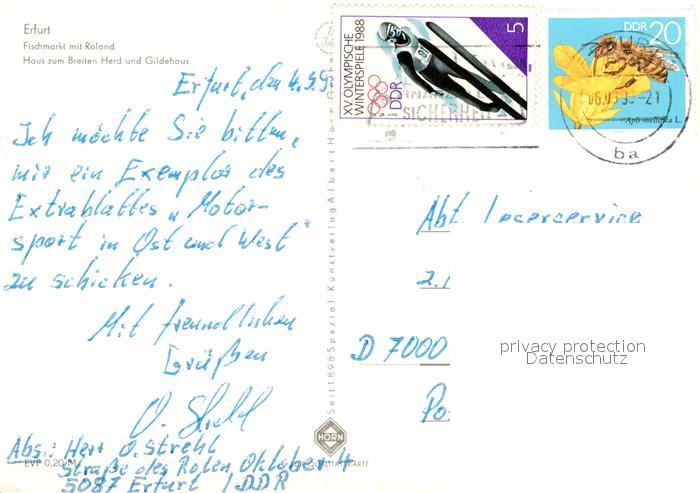 Erfurt
Fischmarkt mit Roland
Haus zum Breiten Herd und Gildehaus
Erfurt, den 4.5.9
Ich möchte Sie bitten,
mir ein Exemplar des
Extrablattes „Motor-
sport in Ost und West"
zu schicken.
Mit freundlichen
Grüßen
O. Strehl
Abs.: Herr O. Strehl
Straße des Roten Oktober 4
5087 Erfurt / DDR
EVP 0,20 M
Seit 1898 Spezial-Kunstverlag Albert Horn
HORN
QUALITÄTSKARTE
XV. OLYMPISCHE
WINTERSPIELE 1988
DDR
5
DDR 20
Apis mellifica L.
SICHERHEIT
ba
Abt. Leserservice
D 7000
privacy protection
Datenschutz